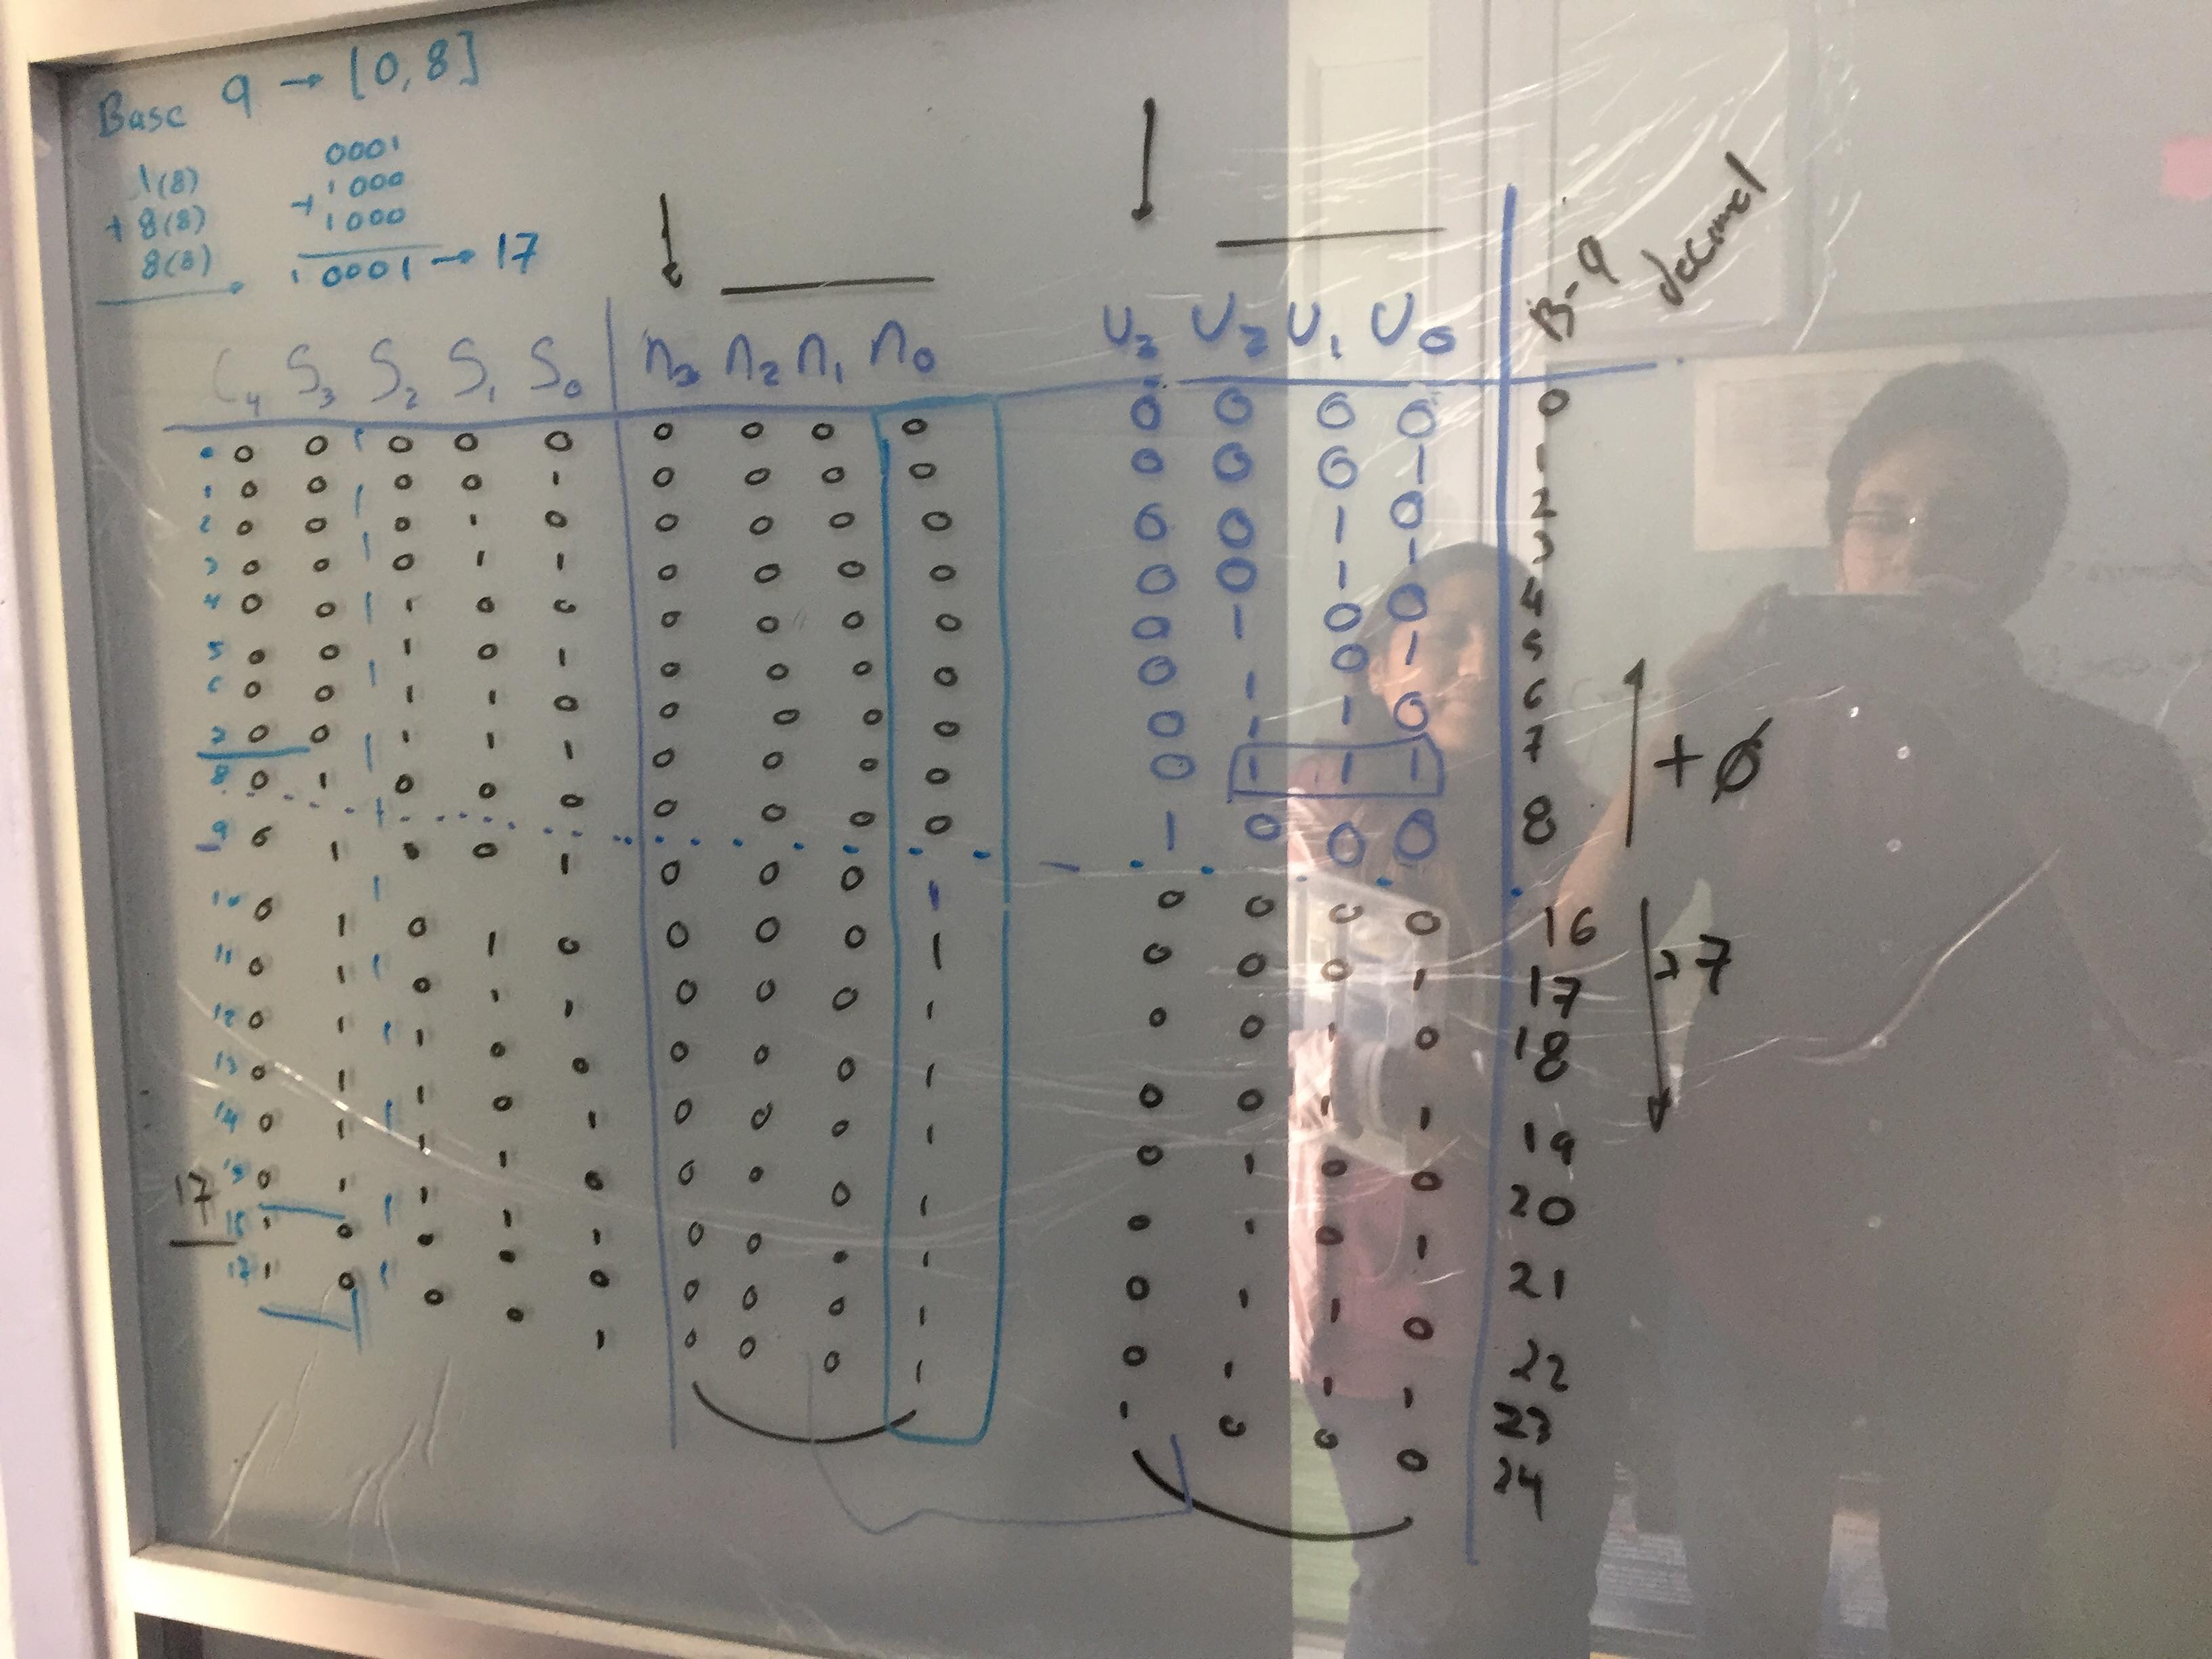 Base 9 → [0,8]
1(8)
+ 8(8)
8(8)
0001
+ 1000
1000
10001 → 17
C4 S3 S2 S1 S0 n3 n2 n1 n0 U3 U2 U1 U0 B-9 decimal
0 0 0 0 0 0 0 0 0 0 0 0 0 0 0
1 0 0 0 0 1 0 0 0 0 0 0 0 1 1
2 0 0 0 1 0 0 0 0 0 0 0 1 0 2
3 0 0 0 1 1 0 0 0 0 0 0 1 1 3
4 0 0 1 0 0 0 0 0 0 0 1 0 0 4
5 0 0 1 0 1 0 0 0 0 0 1 0 1 5
6 0 0 1 1 0 0 0 0 0 0 1 1 0 6
7 0 0 1 1 1 0 0 0 0 0 1 1 1 7
8 0 1 0 0 0 0 0 0 0 1 0 0 0 8
+ 0
9 0 1 0 0 1 0 0 0 1 0 0 0 0 16
10 0 1 0 1 0 0 0 0 1 0 0 0 1 17
11 0 1 0 1 1 0 0 0 1 0 0 1 0 18
12 0 1 1 0 0 0 0 0 1 0 0 1 1 19
13 0 1 1 0 1 0 0 0 1 0 1 0 0 20
14 0 1 1 1 0 0 0 0 1 0 1 0 1 21
15 0 1 1 1 1 0 0 0 1 0 1 1 0 22
16 1 0 0 0 0 0 0 0 1 0 1 1 1 23
17 1 0 0 0 1 0 0 0 1 1 0 0 0 24
+7
17